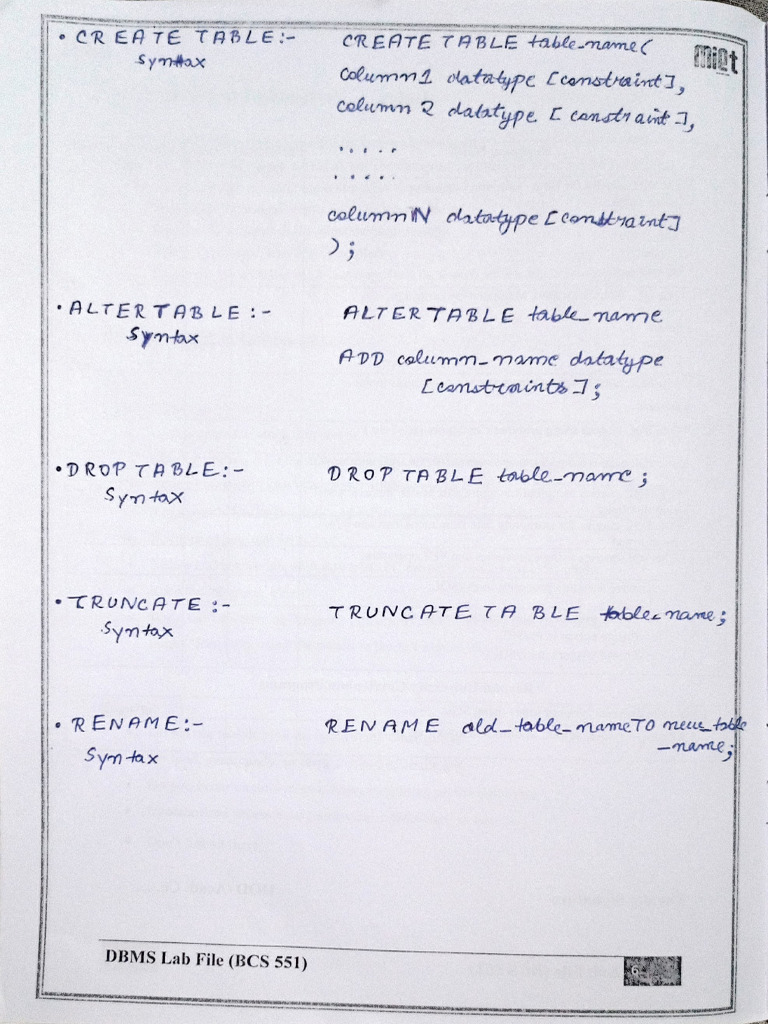 • CREATE TABLE:- CREATE TABLE table_name(
miet
Syntax
column1 datatype [constraint],
column 2 datatype [constraint],
.....
.....
columnN datatype [constraint]
);
• ALTER TABLE :- ALTER TABLE table_name
Syntax
ADD column_name datatype
[constraints];
• DROP TABLE:- DROP TABLE table_name;
Syntax
• TRUNCATE :- TRUNCATE TABLE table_name;
Syntax
• RENAME:- RENAME old_table_name TO new_table
_name;
Syntax
DBMS Lab File (BCS 551)
6